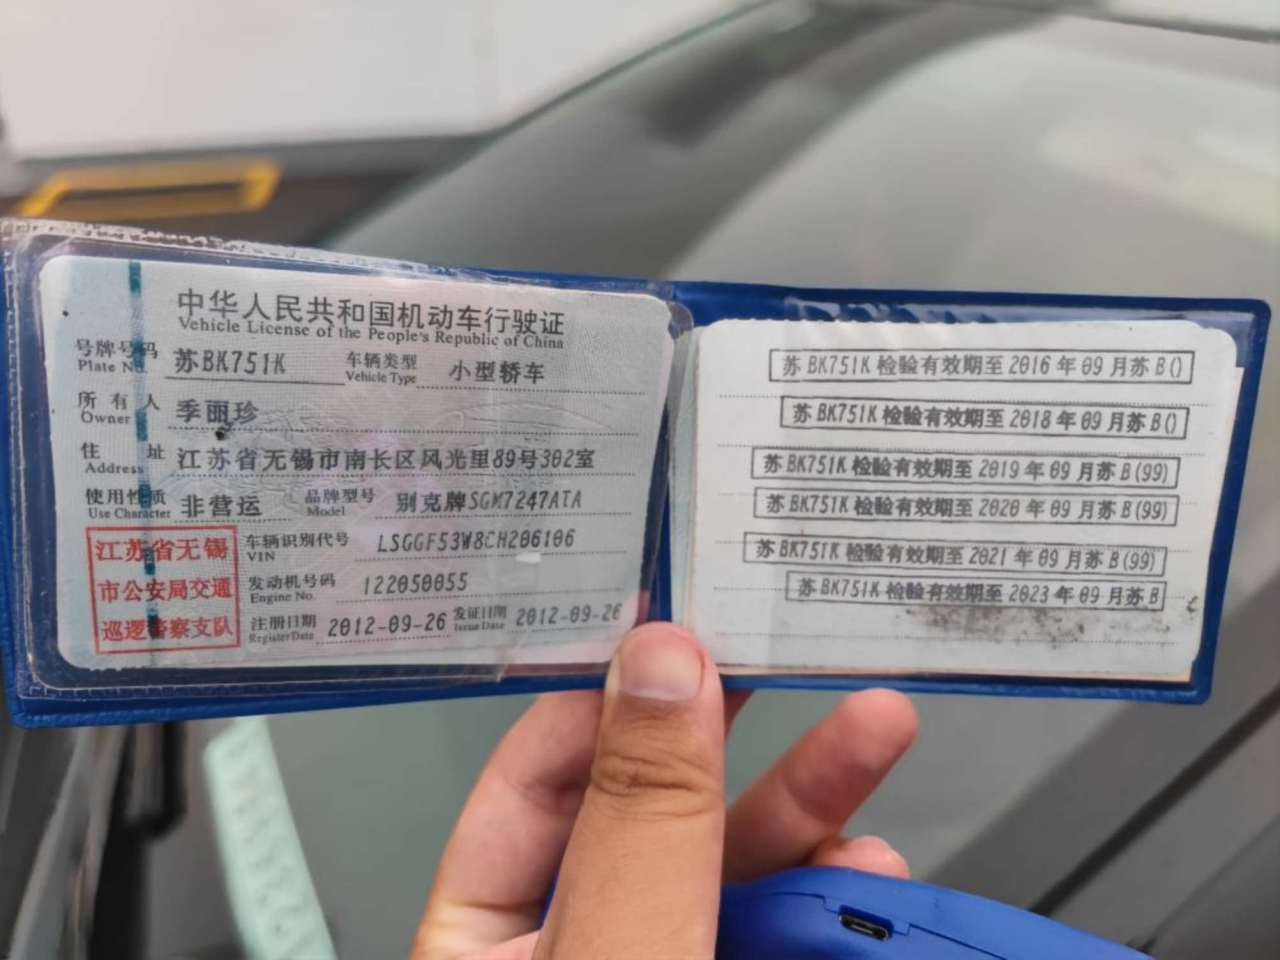 中华人民共和国机动车行驶证
Vehicle License of the People's Republic of China
号牌号码 苏BK751K 车辆类型 小型轿车
Plate No. Vehicle Type
所有人 季丽珍
Owner
住址 江苏省无锡市南长区风光里89号302室
Address
使用性质 非营运 品牌型号 别克牌SGM7247ATA
Use Character Model
江苏省无锡
市公安局交通
巡逻警察支队
车辆识别代号 LSGGF53W8CH206106
VIN
发动机号码 122050055
Engine No.
注册日期 2012-09-26 发证日期 2012-09-26
Register Date Issue Date
苏BK751K 检验有效期至 2016 年 09 月苏 B()
苏BK751K 检验有效期至 2018 年 09 月苏 B()
苏BK751K 检验有效期至 2019 年 09 月苏 B(99)
苏BK751K 检验有效期至 2020 年 09 月苏 B(99)
苏BK751K 检验有效期至 2021 年 09 月苏 B(99)
苏BK751K 检验有效期至 2023 年 09 月苏 B